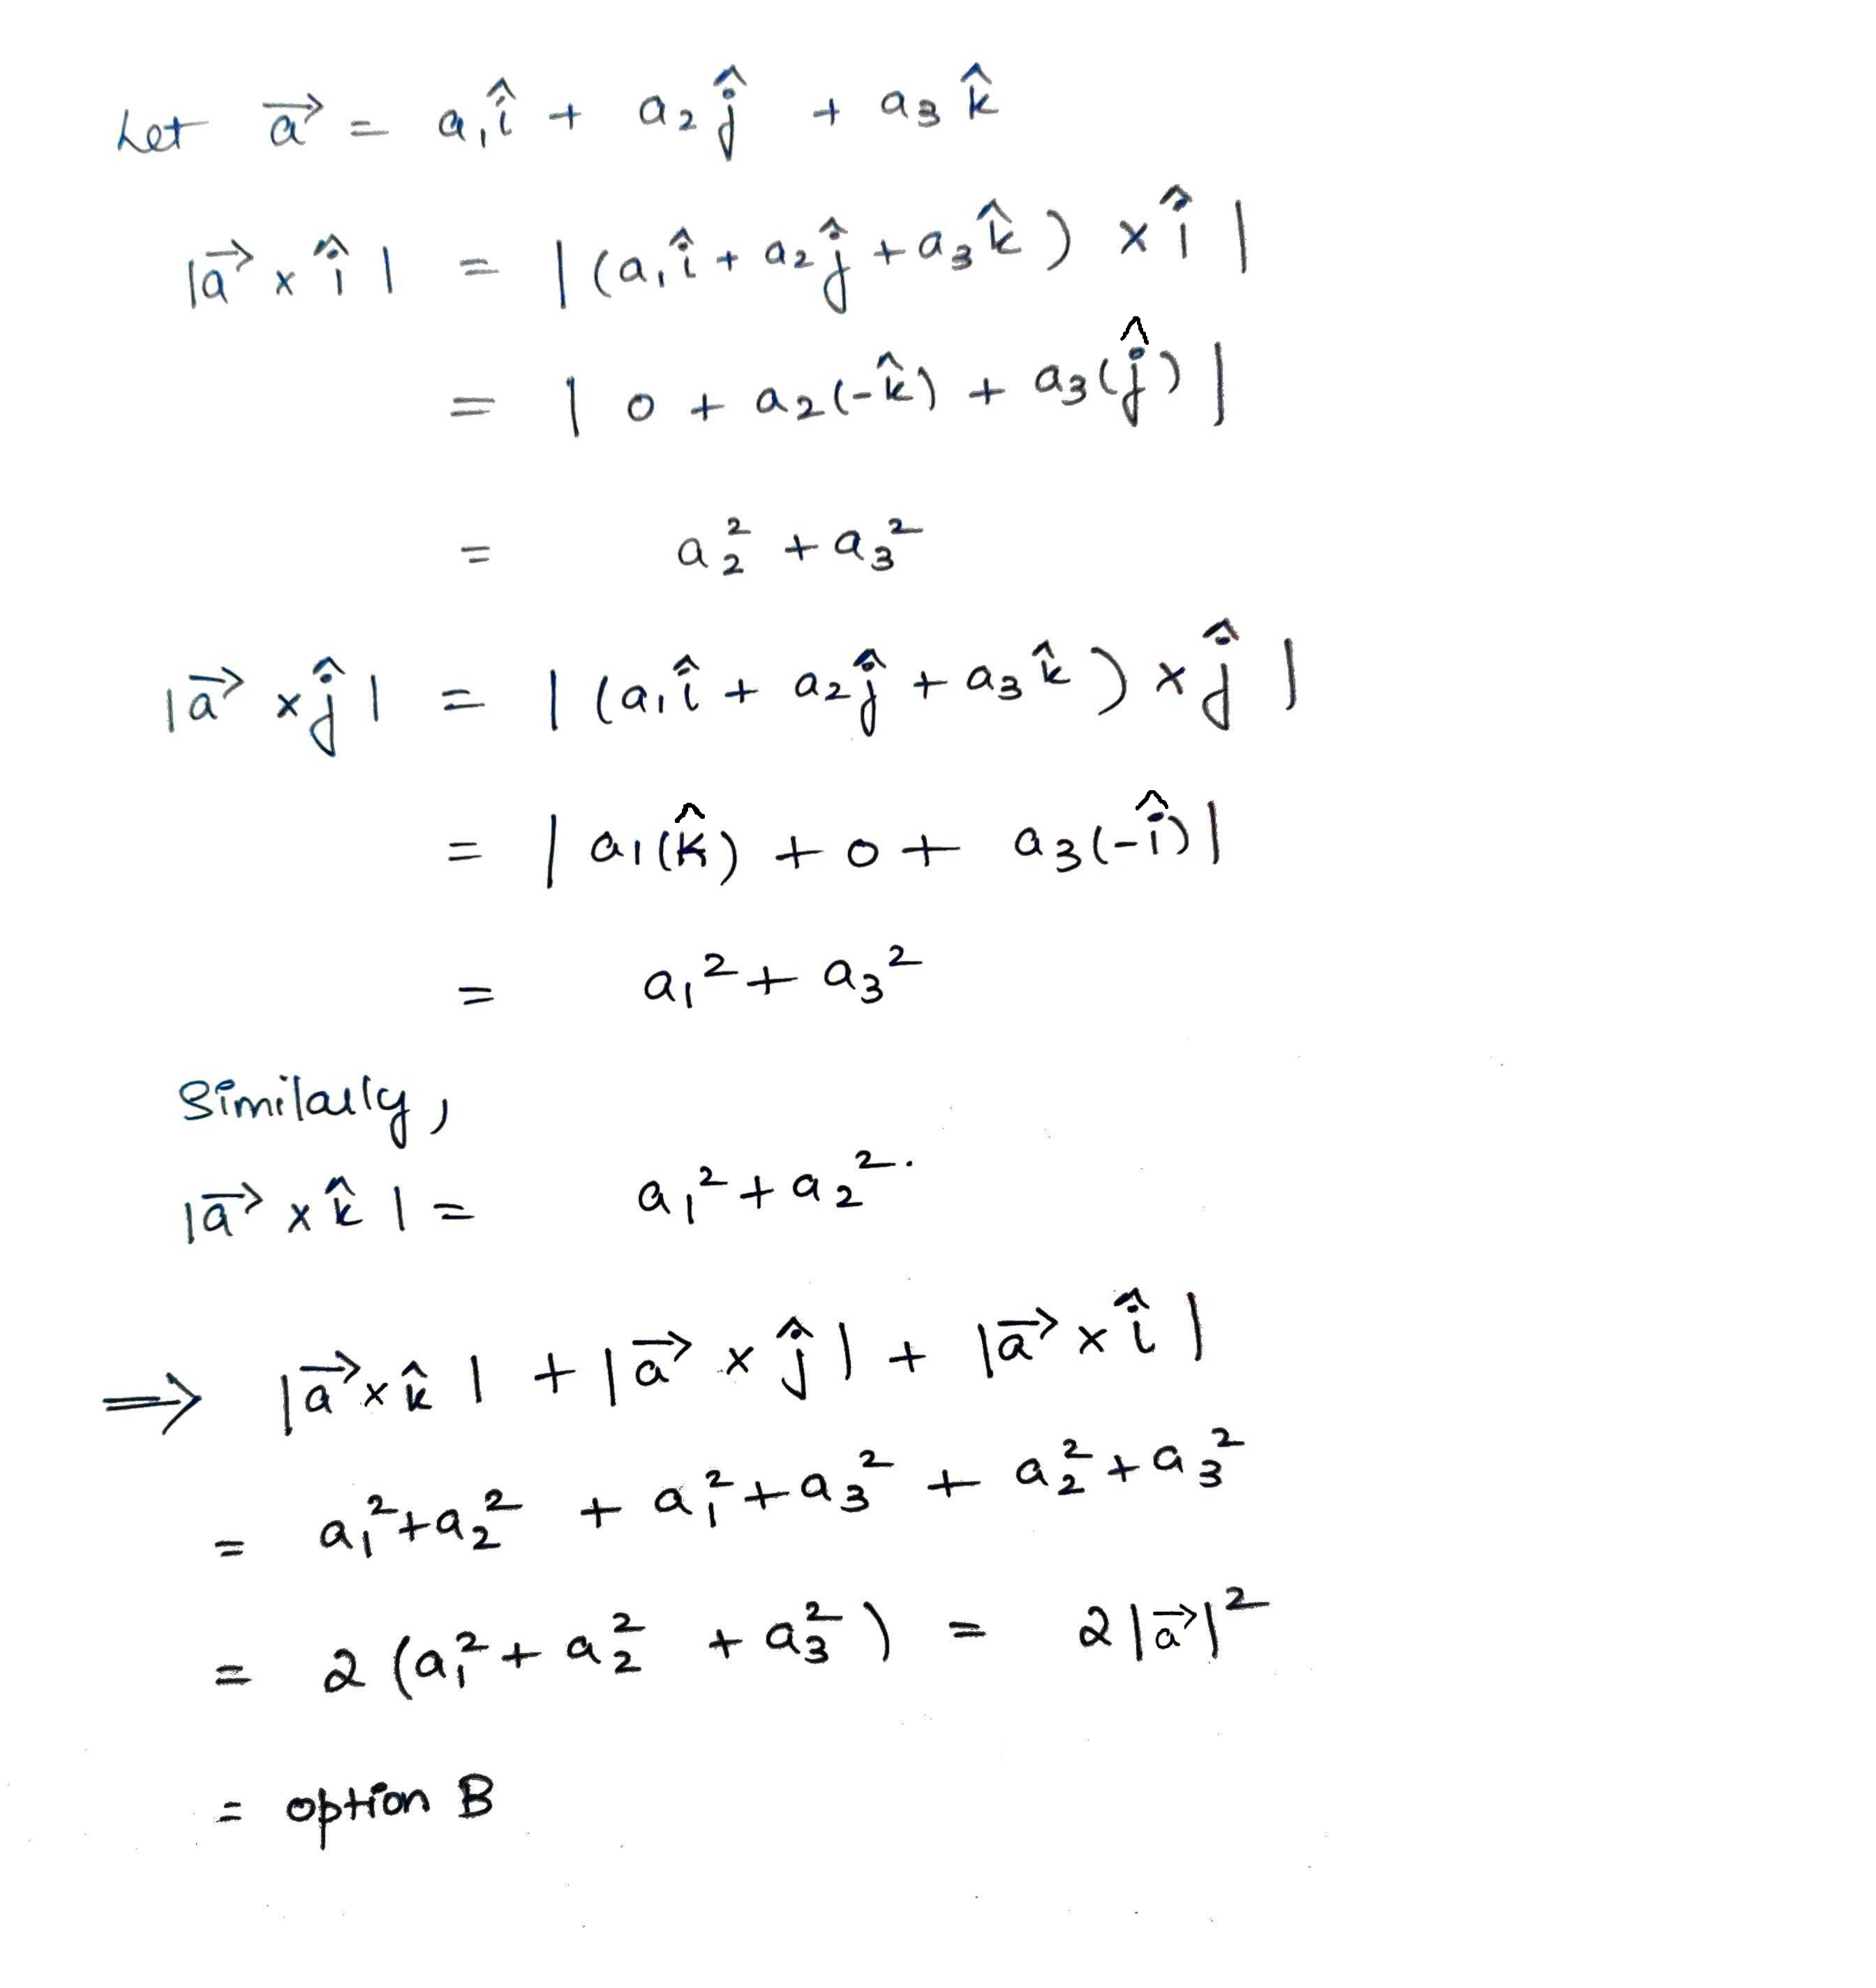 Let a⃗ = a₁î + a₂ĵ + a₃k̂
|a⃗ × î| = |(a₁î + a₂ĵ + a₃k̂) × î|
= |0 + a₂(-k̂) + a₃(ĵ)|
= a₂² + a₃²
|a⃗ × ĵ| = |(a₁î + a₂ĵ + a₃k̂) × ĵ|
= |a₁(k̂) + 0 + a₃(-î)|
= a₁² + a₃²
Similarly,
|a⃗ × k̂| = a₁² + a₂².
⟹ |a⃗ × k̂| + |a⃗ × ĵ| + |a⃗ × î|
= a₁² + a₂² + a₁² + a₃² + a₂² + a₃²
= 2(a₁² + a₂² + a₃²) = 2|a⃗|²
= option B